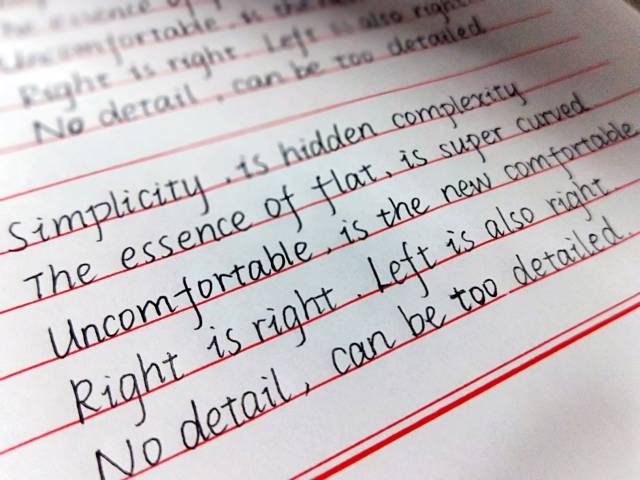 the essence of
Uncomfortable, is the ne
Right is right. Left is also right
No detail, can be too detailed
Simplicity, is hidden complexity
The essence of flat, is super curved
Uncomfortable, is the new comfortable
Right is right. Left is also right
No detail, can be too detailed.